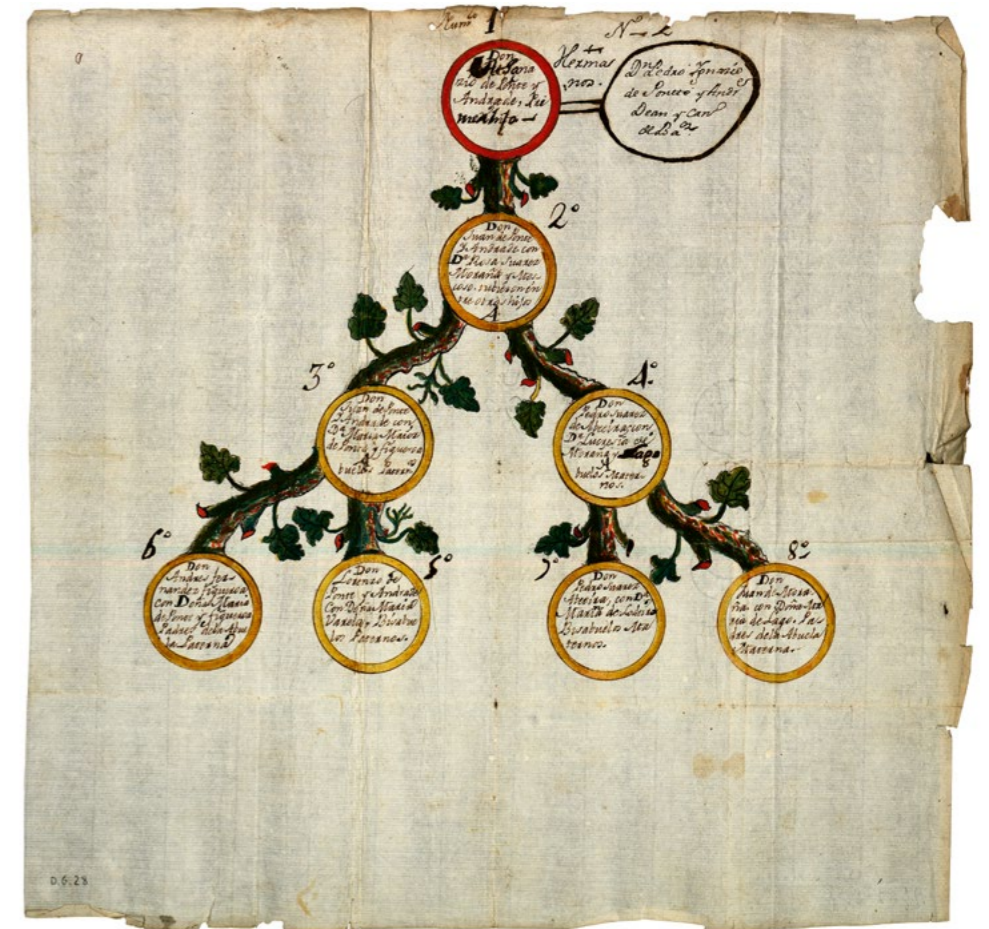 Num.º
1
Don
nio de Ponte y
Andrade, Pri
Herma
nos.
Dn Pedro Ignacio
de Ponce y Andr
Dean y Can
2º
Don
Juan de Ponte
y Andrade con
Dª Rosa Suarez
Moraña y Mos
coso, tubieron en
tre otros hijos
A
3º
Don
Juan de Ponte
y Andrade con
Dª Maria
de Ponte y figueroa
A
buelos Paternos
4º
Don
Pedro Suarez
Dª Lucresia de
Moraña y Lago
A
buelos Mater
nos.
6º
Don
Andres fer
nandez figueroa,
con Doña Maria
de Ponte y figueroa
Padres de la Abue
la Paterna
5º
Don
Lorenzo de
Ponte y Andrade
Con Doña Maria
Varela, Bisabue
los Paternos.
7º
Don
Pedro Suarez
con Dª
Maria de
Bisabuelos Ma
ternos.
8º
Don
Juan de Mora
ña con Doña Ma
ria de Lago. Pa
dres de la Abuela
Materna.
D.G.28